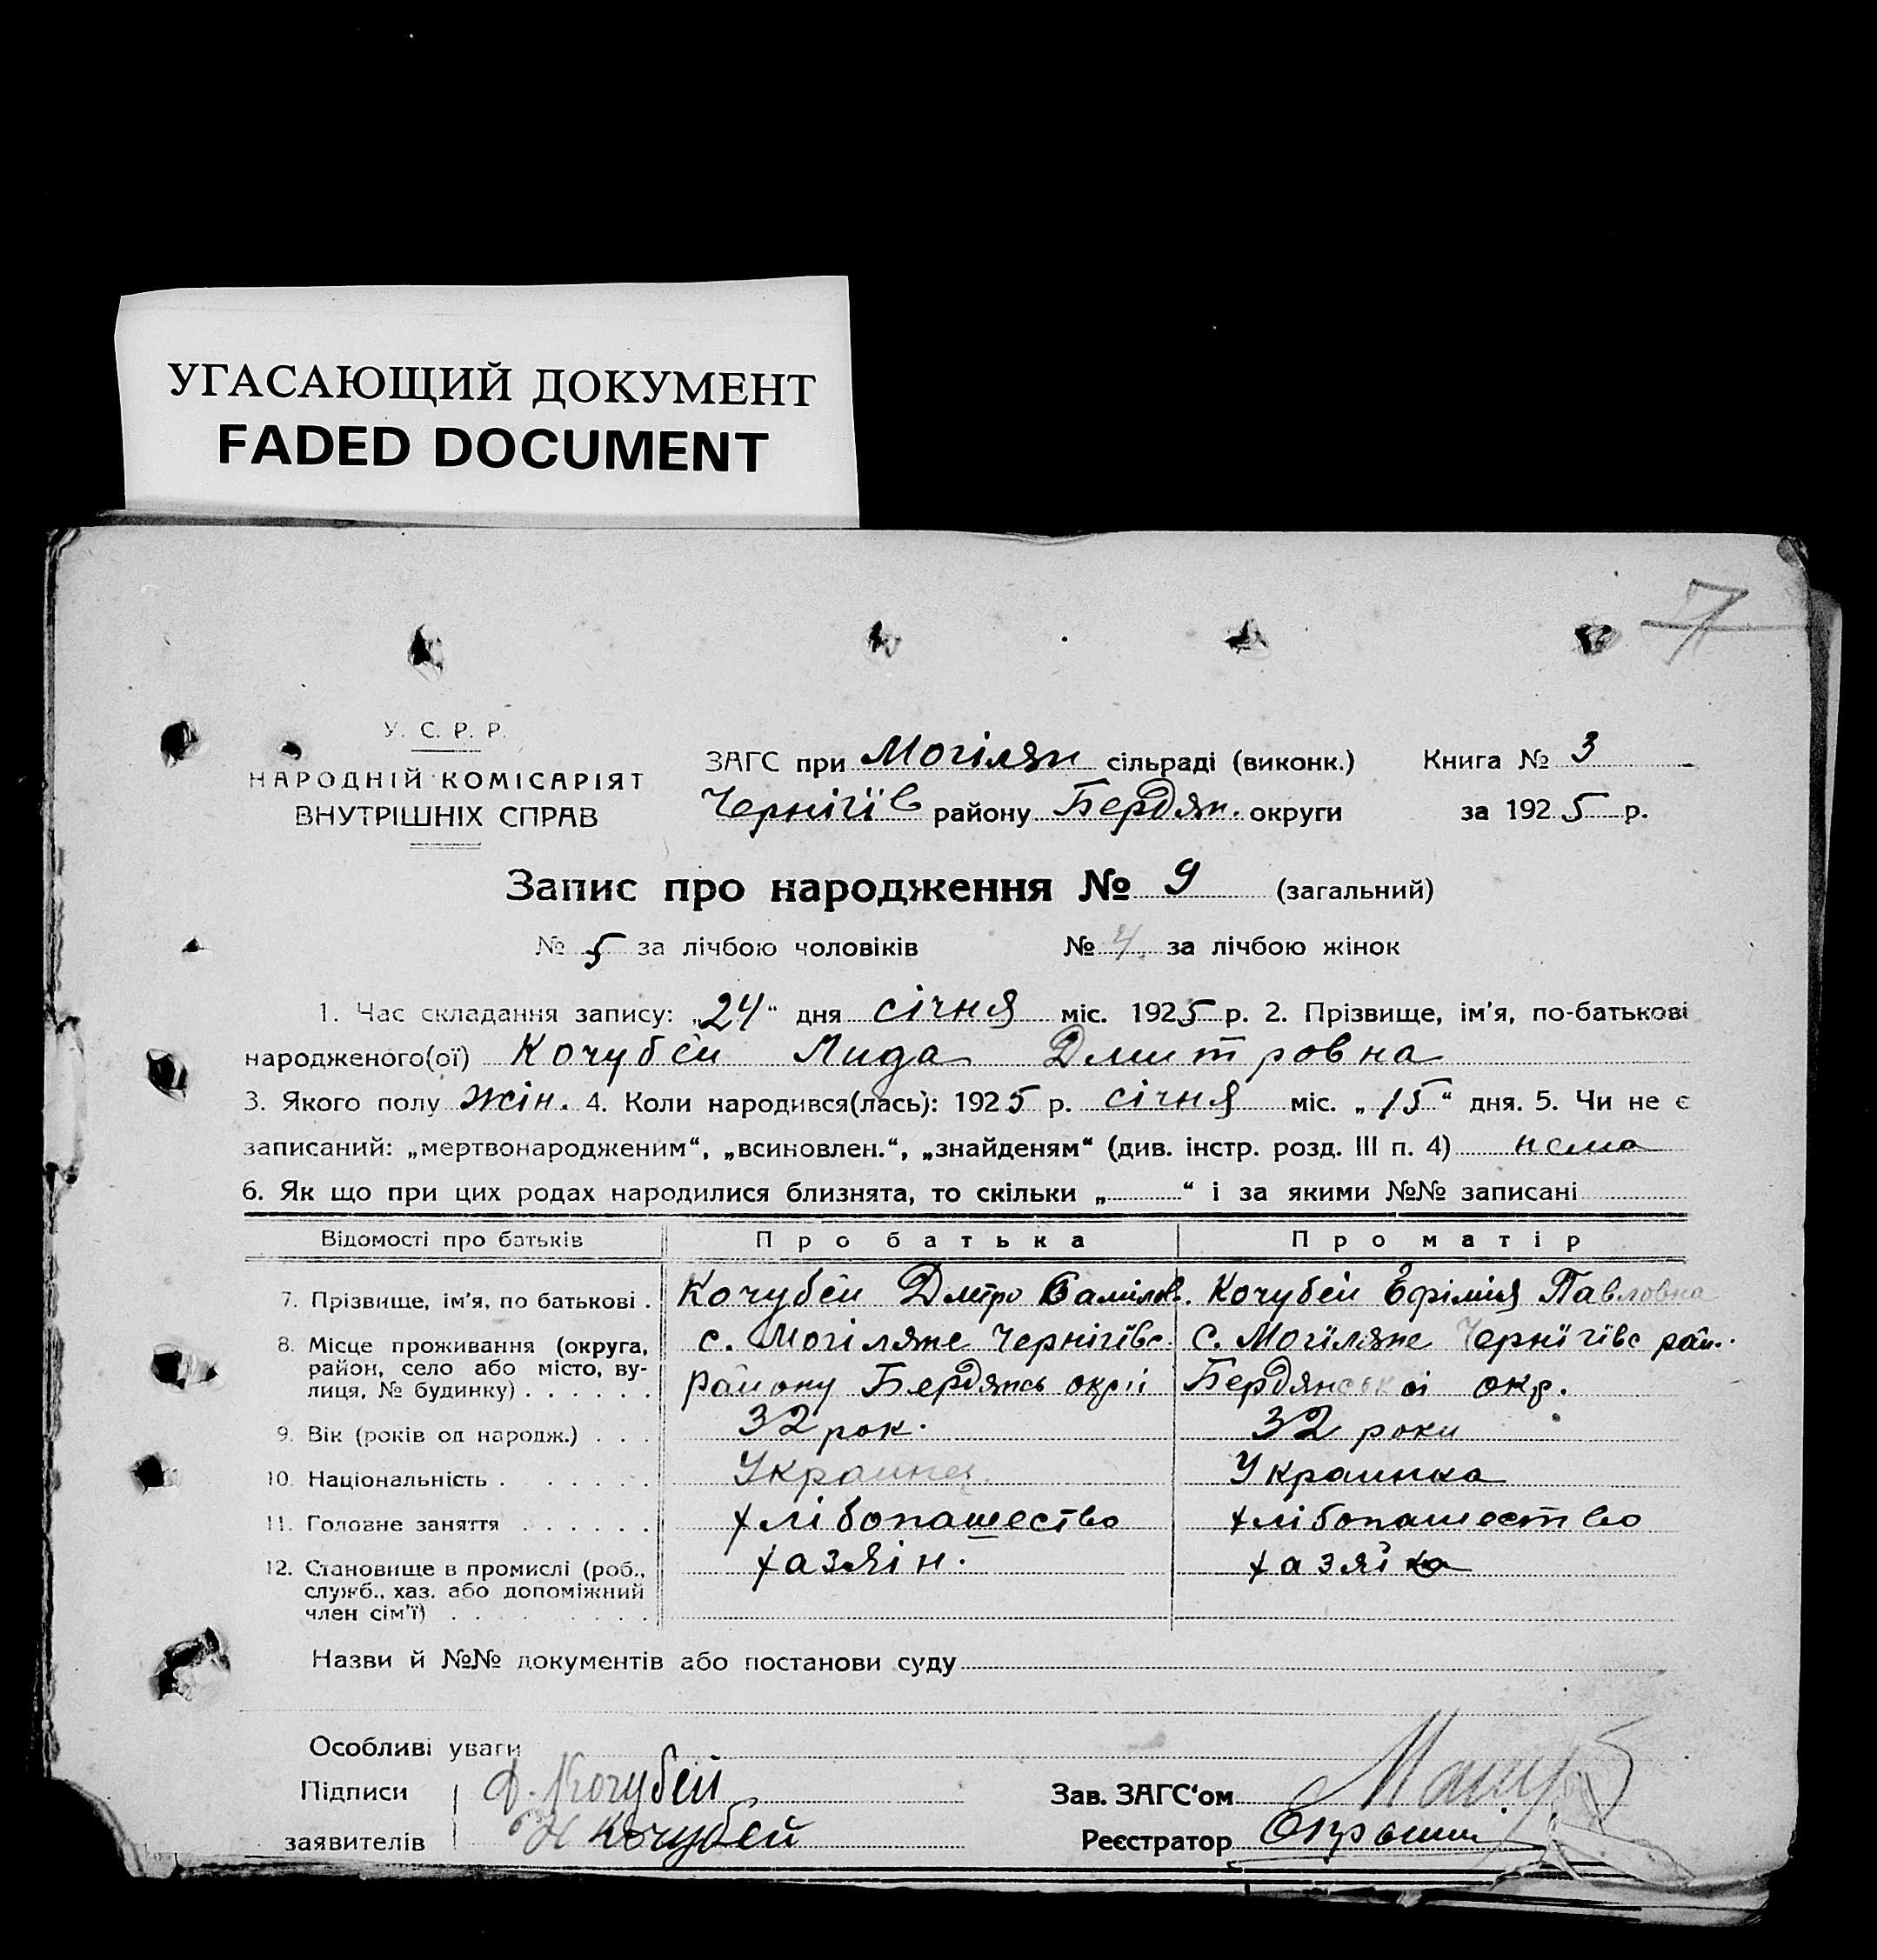 УГАСАЮЩИЙ ДОКУМЕНТ
FADED DOCUMENT
7
У. С. Р. Р.
НАРОДНІЙ КОМІСАРІЯТ
ВНУТРІШНІХ СПРАВ
ЗАГС при Могілян сільраді (виконк.) Книга № 3
Чернігів району Бердян. округи за 1925 р.
Запис про народження № 9 (загальний)
№ 5 за лічбою чоловіків № 4 за лічбою жінок
1. Час складання запису: „24“ дня січня міс. 1925 р. 2. Прізвище, ім'я, по-батькові
народженого(ої) Кочубей Лида Дмитровна
3. Якого полу жін. 4. Коли народився(лась): 1925 р. січня міс. „15“ дня. 5. Чи не є
записаний: „мертвонародженим“, „всиновлен.“, „знайденям“ (див. інстр. розд. III п. 4) нема
6. Як що при цих родах народилися близнята, то скільки „ “ і за якими №№ записані
Відомості про батьків Про батька Про матір
7. Прізвище, ім'я, по батькові . Кочубей Дмітро Самілов. Кочубей Ефімія Павловна
8. Місце проживання (округа, с. Могіляне Чернігівс. с. Могіляне Чернігівс рай.
район, село або місто, ву-
лиця, № будинку) . . . . . . району Бердянсь окрії Бердянської окр.
9. Вік (років од народж.) . . . 32 рок. 32 роки
10. Національність . . . . . . Украинец Украинка
11. Головне заняття . . . . . . хлібопашество хлібопашество
12. Становище в промислі (роб., хазяін. хазяйка
служб., хаз. або допоміжний
член сім'ї) . . . . . . . .
Назви й №№ документів або постанови суду
Особливі уваги
Підписи Д. Кочубей Зав. ЗАГС'ом
заявителів Кочубей Реєстратор